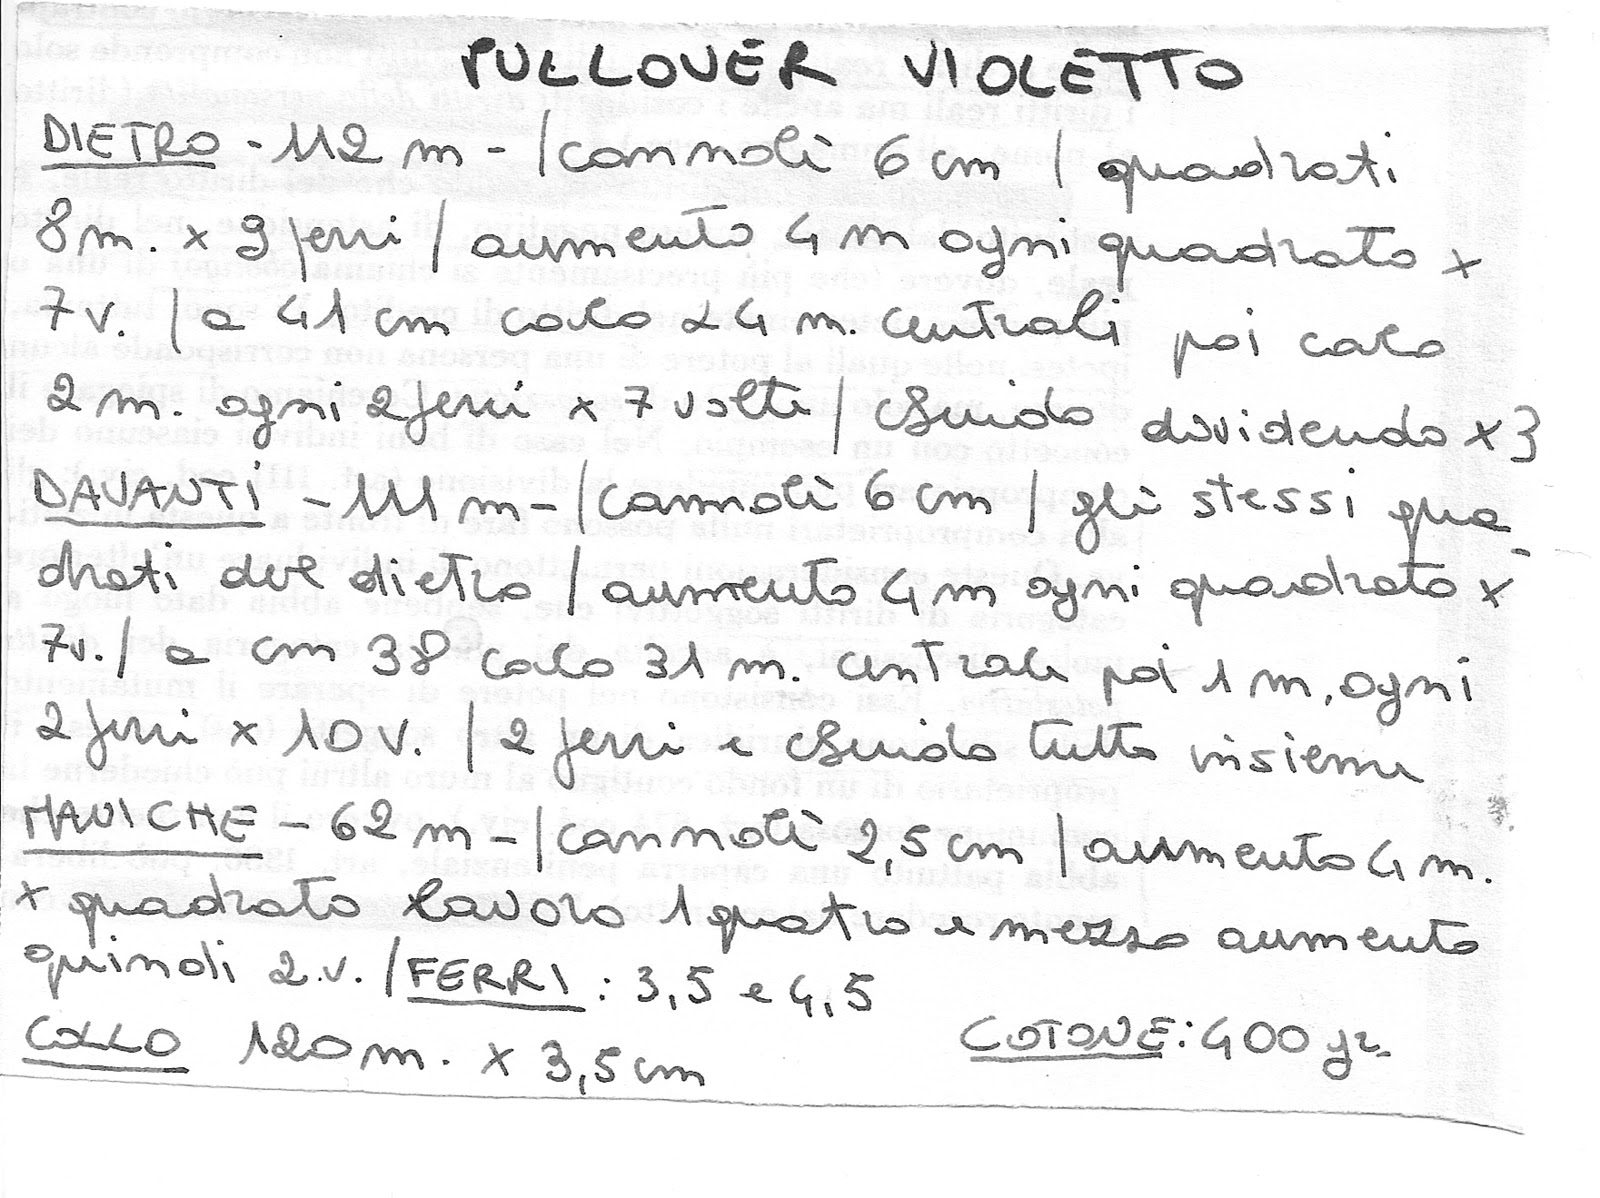 PULLOVER VIOLETTO
DIETRO - 112 m - / cannolè 6 cm / quadrati
8 m. x 9 ferri / aumento 4 m ogni quadrato x
7 v. / a 41 cm calo 24 m. centrali poi calo
2 m. ogni 2 ferri x 7 volte / chiudo dividendo x 3
DAVANTI - 111 m - / cannolè 6 cm / gli stessi qua-
drati del dietro / aumento 4 m ogni quadrato x
7 v. / a cm 38 calo 31 m. centrali poi 1 m, ogni
2 ferri x 10 v. / 2 ferri e chiudo tutto insieme
MANICHE - 62 m - / cannolè 2,5 cm / aumento 4 m.
x quadrato lavoro 1 quatro e mezzo aumento
quindi 2.v. / FERRI : 3,5 e 4,5
COLLO 120 m. x 3,5 cm
COTONE: 400 gr.